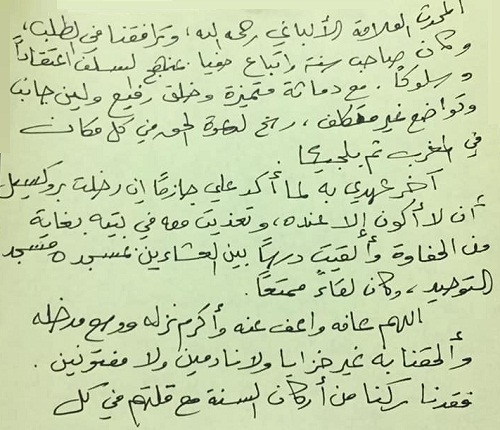 المحدث العلامة الألباني رحمه الله، وترافقنا في الطلب،
وكان صاحب سنة واتباع حفيا بمنهج السلف اعتقاداً
وسلوكاً. مع دماثة متميزة وخلق رفيع ولين جانب
وتواضع غير متكلف، رسخ لدعوة الحق في كل مكان
في المغرب ثم بلجيكا.
آخر عهدي به لما أكد علي جازماً إن دخلت بروكسيل
أن لا أكون إلا عنده، وتغذيت معه في بيته بغاية
من الحفاوة وألقيت درساً بين العشاءين بمسجده مسجد
التوحيد، وكان لقاءً ممتعاً.
اللهم عافه واعف عنه وأكرم نزله ووسع مدخله
وألحقنا به غير خزايا ولا نادمين ولا مفتونين.
فقدنا ركنا من أركان السنة مع قلتهم في كل